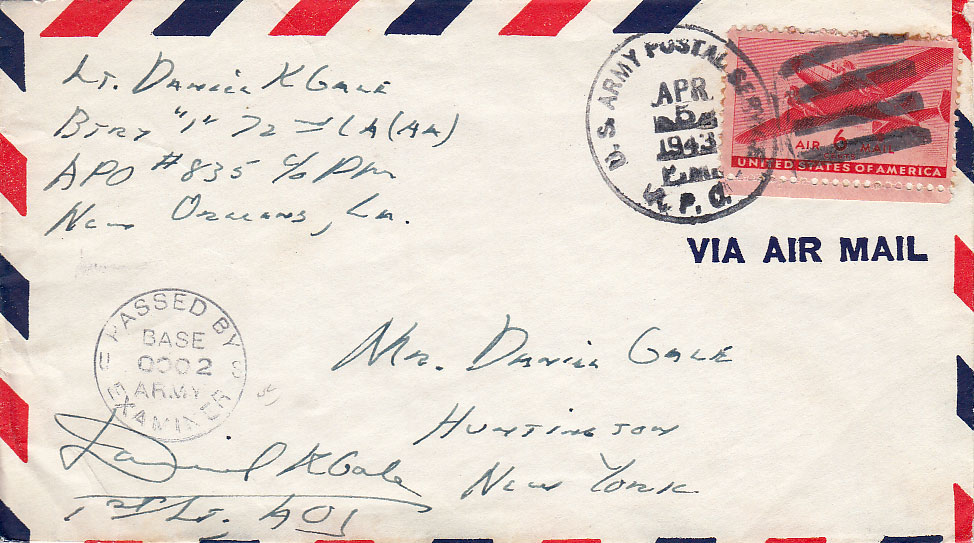 Lt. Daniel K Gale
Btry "I" 72 CA(AA)
APO #835 c/o PM
New Orleans, La.
U.S. ARMY POSTAL SERVICE
APR
5
1943
A.P.O.
AIR 6 MAIL
UNITED STATES OF AMERICA
VIA AIR MAIL
PASSED BY
BASE
0002
ARMY
EXAMINER
U S
Mr. Daniel Gale
Huntington
New York
Daniel K Gale
1st Lt.